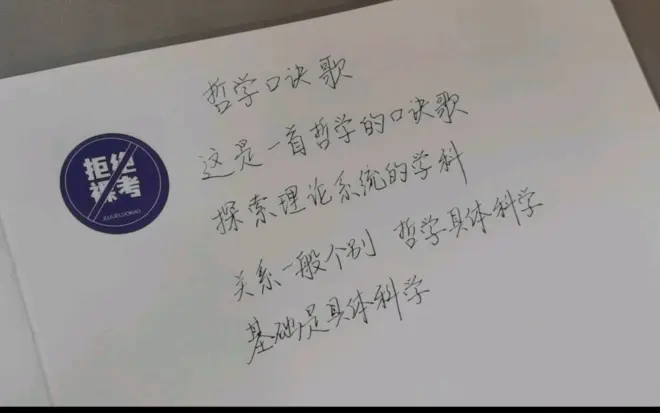 哲学口诀歌
这是一首哲学的口诀歌
探索理论系统的学科
关系一般个别 哲学具体科学
基础是具体科学
拒绝
裸考
JUJUELUOKAO